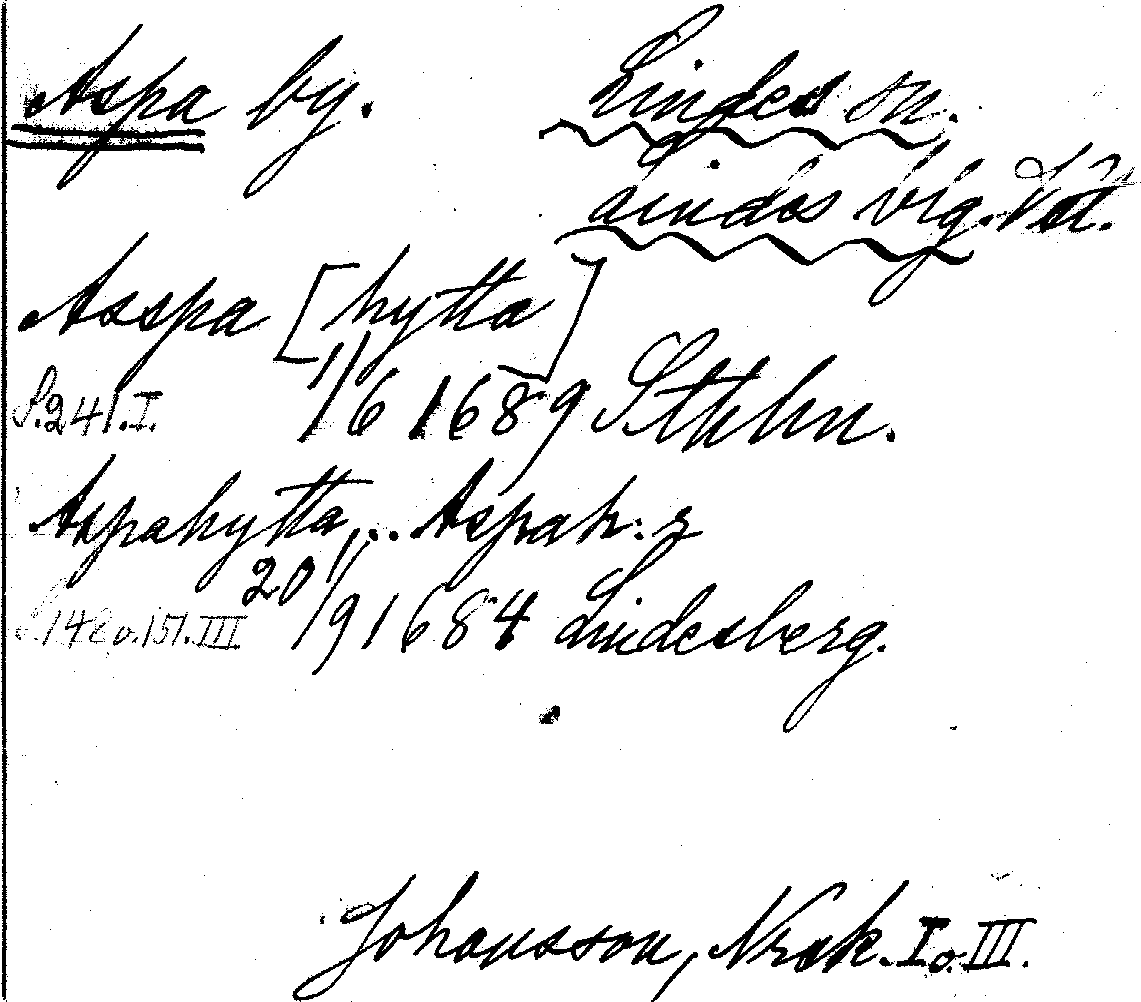 Aspa by. Lindes sn.
Lindes blg. Vstl.
Asspa [hytta]
S.241.I. 1/6 1689 Sthlm.
Aspahytta, .. Aspah:s
S.142 o.151.III 20/9 1684 Lindesberg.
Johansson, Nrak. I o. III.